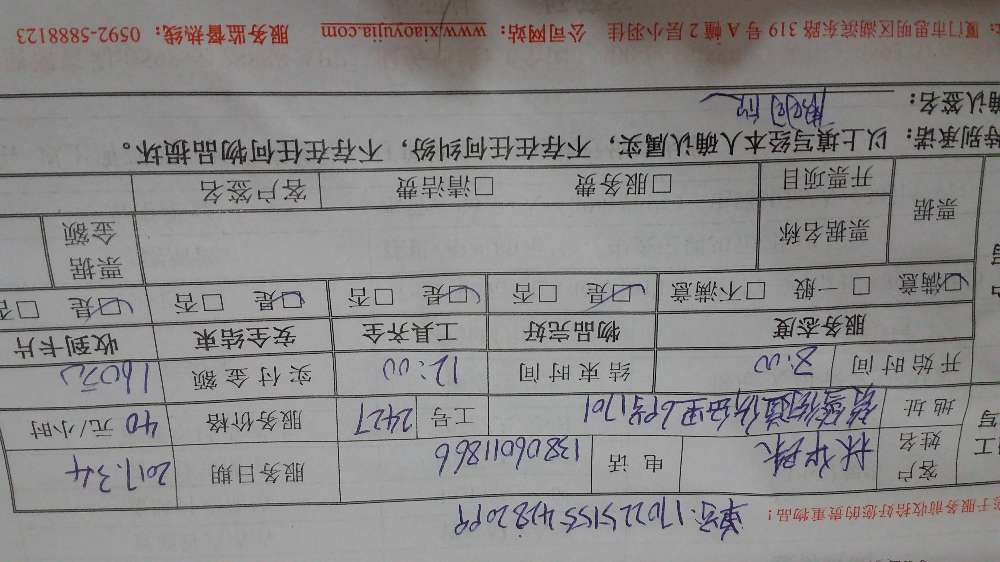 于服务前收拾好您的贵重物品！
单号:
客户姓名 电话 13806011866 服务日期 2017.3.4
地址 工号 2427 服务价格 40 元/小时
开始时间 8:00 结束时间 12:00 实付金额 160元
服务态度 物品完好 工具齐全 安全结束 收到卡片
☑满意 □一般 □不满意 ☑是 □否 ☑是 □否 ☑是 □否 ☑是 □否
票据 票据名称 票据金额
开票项目 □服务费 □清洁费 客户签名
特别承诺：以上填写经本人确认属实，不存在任何纠纷，不存在任何物品损坏。
确认签名：
厦门市思明区湖滨东路 319 号 A 幢 2 层小羽佳 公司网站：www.xiaoyujia.com 服务监督热线：0592-5888123